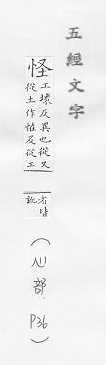 五經文字
怪
工壞反異也從又
從土作恠及從工
者皆
訛
(心部 P36)